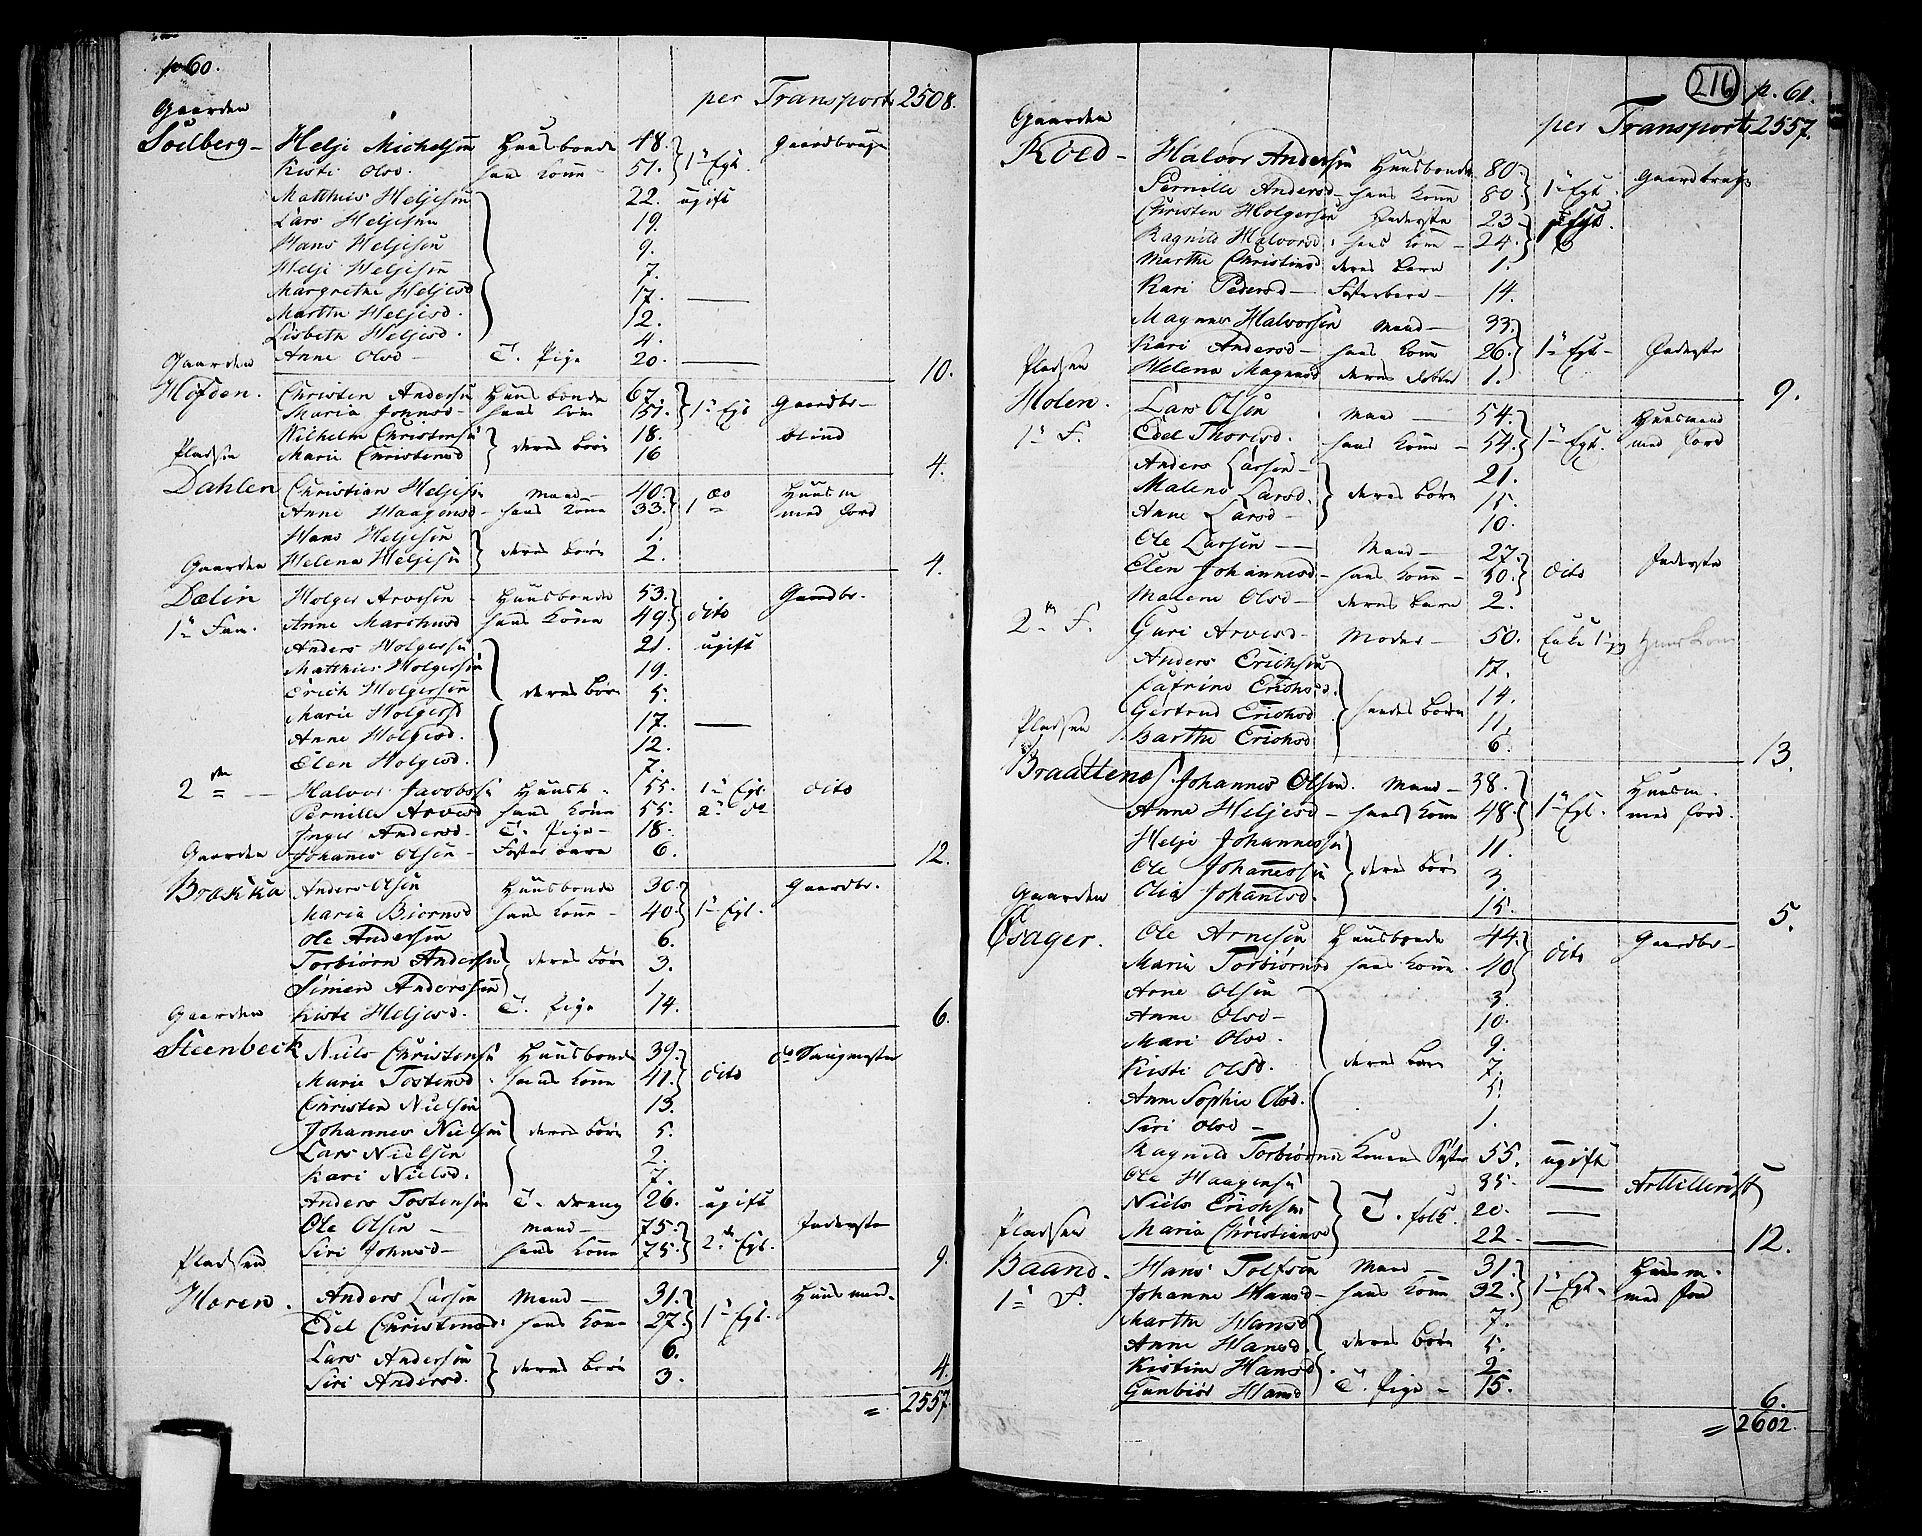 p. 60.
per Transport 2508.
Gaarden
Soelberg - Helje Michelsøn Huusbonde 48. 1te Egt. Gaardbruger
Kisti Olsd. hans Kone 51.
Matthies Heljesøn 22. ugift
Lars Heljesøn 19.
Hans Heljesøn 9.
Helje Heljesøn 7.
Margrethe Heljesd 17. —
Marthe Heljesd. 12.
Lisbeth Heljesd. 4.
Anne Olsd - T. Pige 20. —
10.
Gaarden
Hofden. Christen Andersøn Huusbonde 67. 1te Egt Gaardbr.
Maria Johnsd - hans Kone 51.
Wilhelm Christensøn deres Børn 18. blind
Marie Christensd 16
4.
Pladsen
Dahlen Christian Heljesøn Mand 40. 1 do Huusm
Anne Haagensd - hans Kone 33. med Jord
Hans Heljesøn deres Børn 1.
Helena Heljesøn 2.
4.
Gaarden
Dælin Holger Arvesøn - Huusbonde 53. dito Gaardbr.
1te Fam. Anne Marthisd hans Kone 49.
Anders Holgersøn 21. ugift
Matthies Holgersøn 19.
Erich Holgersøn deres Børn 5.
Marie Holgersd 17. —
Anne Holgersd. 12.
Elen Holgersd. 7.
2den — Halvor Jacobsøn Huusb. 55. 1te Egt. dito
Pernille Arvesd hans Kone 55. 2. do
Inger Andersd - T. Pige - 18.
Johannes Olsøn - Foster barn 6.
12.
Gaarden
Brakka Anders Olsøn Huusbonde 30. 1te Egt. Gaardbr.
Maria Biørnsd hans Kone - 40.
Ole Andersøn 6.
Torbiørn Andersøn deres Børn 3.
Simen Andersøn 1.
Kisti Heljesd. T. Pige 14.
6.
Gaarden
Steenbeck Niels Christensøn Huusbonde 39. dito do Saugmester
Marie Tostensd. hans Kone 41.
Christen Nielsøn 13.
Johannes Nielsøn deres Børn 5.
Lars Nielsøn 2.
Kari Nielsd. 7.
Anders Tostensøn T. dreng 26. ugift
Ole Olsøn — Mand — 75. 2. Egt. Inderste
Siri Johnsd — hans Kone 75.
9.
Pladsen
Haren. Anders Larsøn Mand — 31. 1te Egt. Huusmand.
Edel Christensd. hans Kone 27.
Lars Andersøn deres Børn 6.
Siri Andersd. 3.
4.
= 2557.
216 p. 61.
per Transport 2557.
Gaarden
Røed - Halvor Andersøn Huusbonde 80. 1te Egt. Gaardbruger
Pernille Andersd - hans Kone 80.
Christen Holgersøn Inderste 23. Egt.
Ragnild Halvorsd. hans Kone - 24.
Marthe Christensd deres Barn 1.
Kari Pedersd - Fosterbarn - 14.
Magnus Halvorsøn Mand - 33. 1te Egt - Inderste
Kari Andersd - hans Kone 26.
Helena Magnusd deres dotter 1.
9.
Pladsen
Holen. Lars Olsøn Mand — 54. 1te Egt. Huusmand
1te F. Edel Thoresd. hans Kone - 54. med Jord
Anders Larsøn - 21.
Malene Larsd. deres Børn 15.
Anne Larsd - 10.
Ole Larsøn — Mand - 27. dito Inderste
Elen Johannesd - hans Kone - 50.
Malene Olsd - deres Barn 2.
2den F. Guri Arvesd. Moder - 50. Enke
Anders Erichsøn 17.
Catrine Erichsd. 14.
Gertrud Erichsd hendes Børn 11.
Barthe Erichsd 6.
13.
Pladsen
Braatten Johannes Olsøn. Mand - 38. 1te Egt. Huusm.
Anne Heljesd - hans Kone 48. med Jord.
Helje Johannessøn 11.
Ole Johannessøn deres Børn 3.
Olia Johannesd. 15.
5.
Gaarden
Esager. Ole Arnesøn Huusbonde 44. dito Gaardbr -
Maria Torbiørnsd hans Kone. 40
Arne Olsøn 3.
Anne Olsd - 10.
Mari Olsd. 9.
Kisti Olsd. deres Børn 7.
Anne Sophie Olsd. 5.
Siri Olsd - 1.
Ragnild Torbiørnsd Konens Søster 55. ugift
Ole Haagensøn 35. — Artillerist
Niels Erichsøn T. folk. 20. —
Maria Christiansd 22. —
12.
Pladsen
Baand. Hans Tolfsøn Mand — 31. 1te Egt - Huusm.
1te F. Johanne Hansd - hans Kone 32. med Jord
Marthe Hansd 7.
Anne Hansd. deres Børn 5.
Kistine Hansd 2.
Gunbiør Hansd T. Pige - 15.
6.
= 2602.